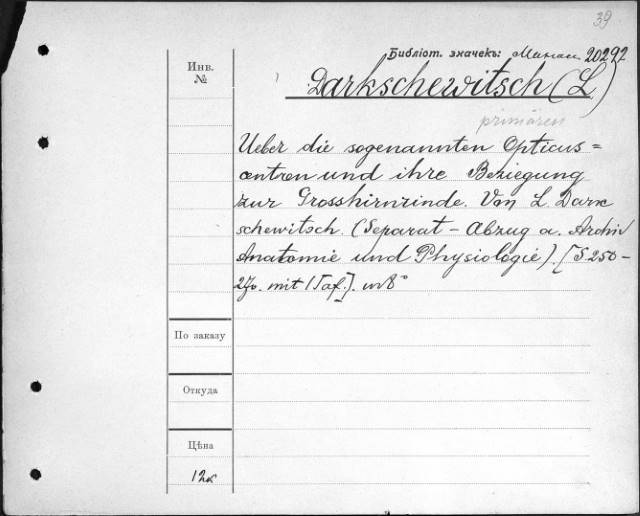 39
Библіот. значекъ: 20292
Инв.
№
Darkschewitsch (L.)
primären
Ueber die sogenannten Opticus=
centren und ihre Beziegung
zur Grosshirnrinde. Von L. Dark
schewitsch. (Separat-Abzug a. Archiv
Anatomie und Physiologie). [S. 250-
270. mit 1 Taf.]. in 8°
По заказу
Откуда
Цѣна
12к